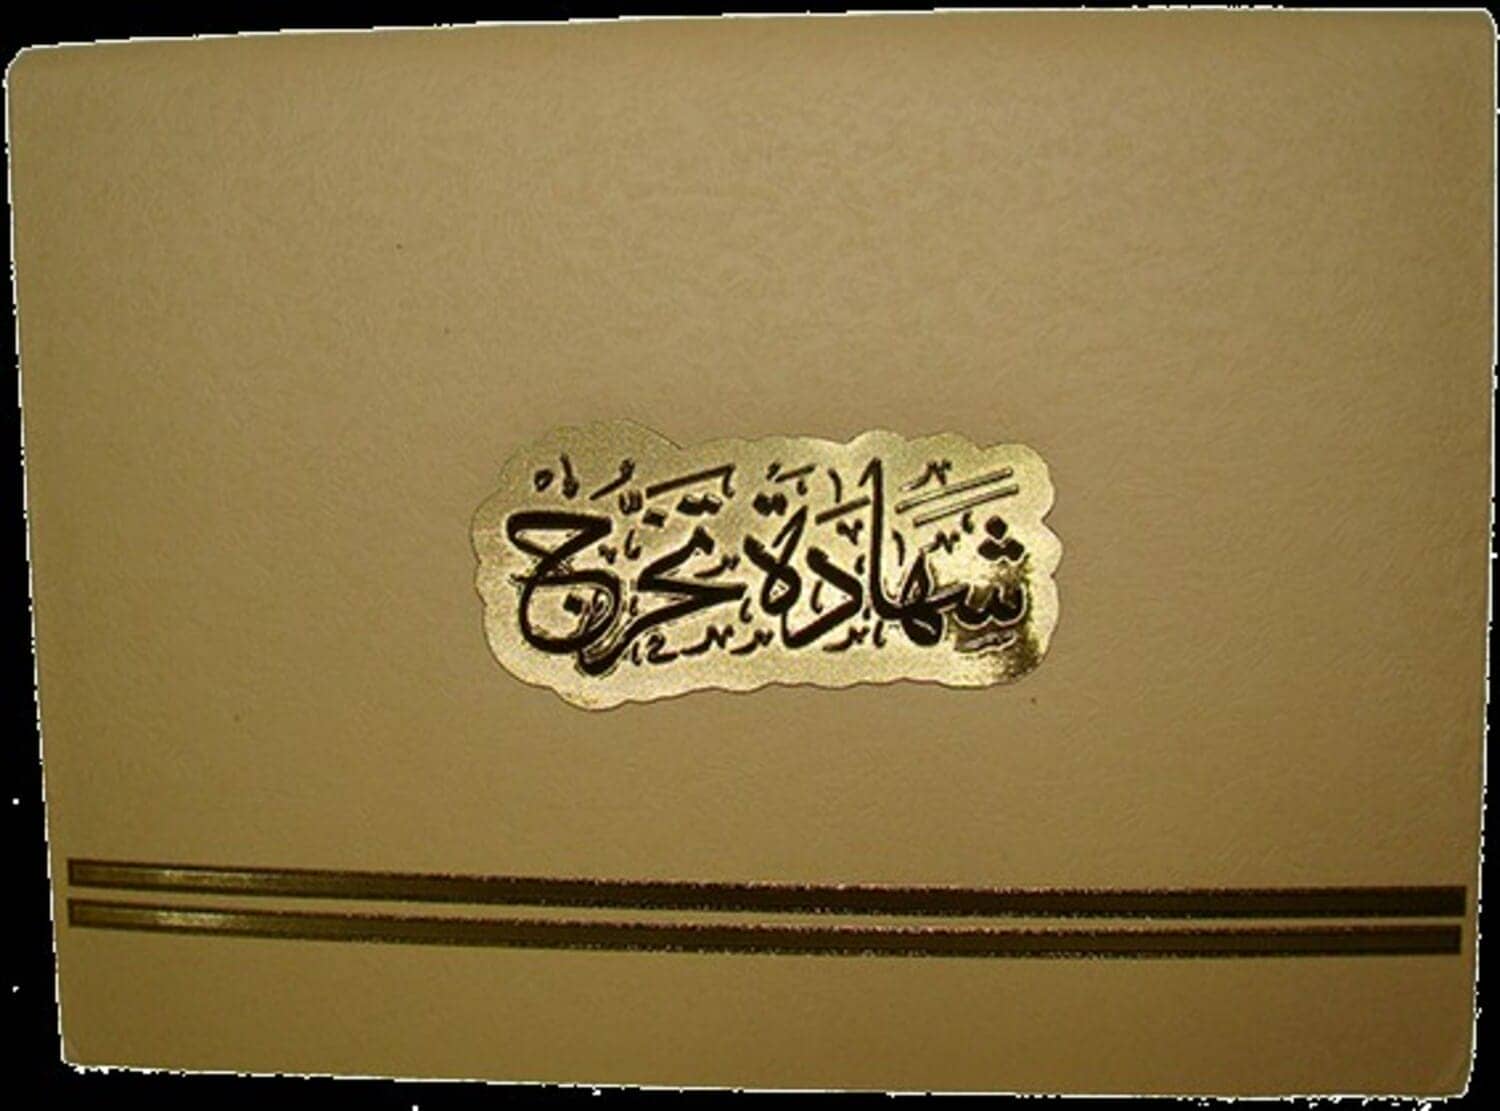 شهادة تخرّج